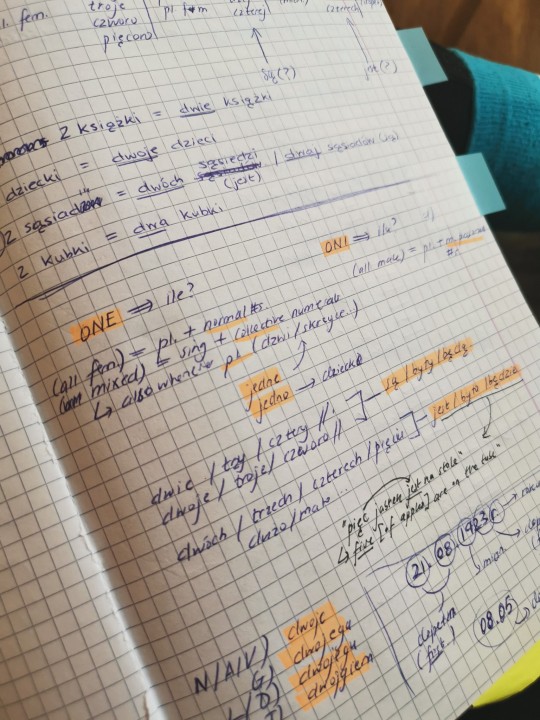 1. fem.
troje
czworo
pięcioro
pl.
czterej
są(?)
jest(?)
2 książki = dwie książki
dziecki = dwoje dzieci
2 = dwóch sąsiedzi
(jest)
2 kubki = dwa kubki
ONE ⇒ ile?
ONI ⇒ ile?
(all male) = pl. +
(all fem) = pl. + normal #s
mixed) = sing + collective numerals
↳ also when pl. (drzwi/skrzyce..)
jedne
jedno → dziecko
dwie / trzy / cztery //.
są / były / będą
dwoje / troje / czworo //
jest / było / będzie
dwóch / trzech / czterech / pięciu
dużo/mało...
"pięć jabłek jest na stole"
↳ five [of apples] are on the table"
21. 08. 1923 r
mian
dopełn
08.05
N/A/V) dwoje
G) dwojga
D) dwojgu
dwojgiem